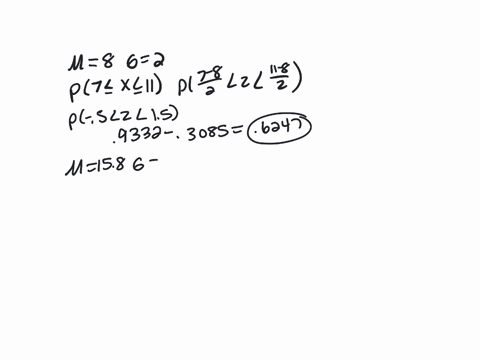 μ=8 σ=2
P(7≤ X≤11) P(7-8/2 <z< 11-8/2)
P(-.5<z<1.5)
.9332-.3085=.6247
μ=15.8 σ=